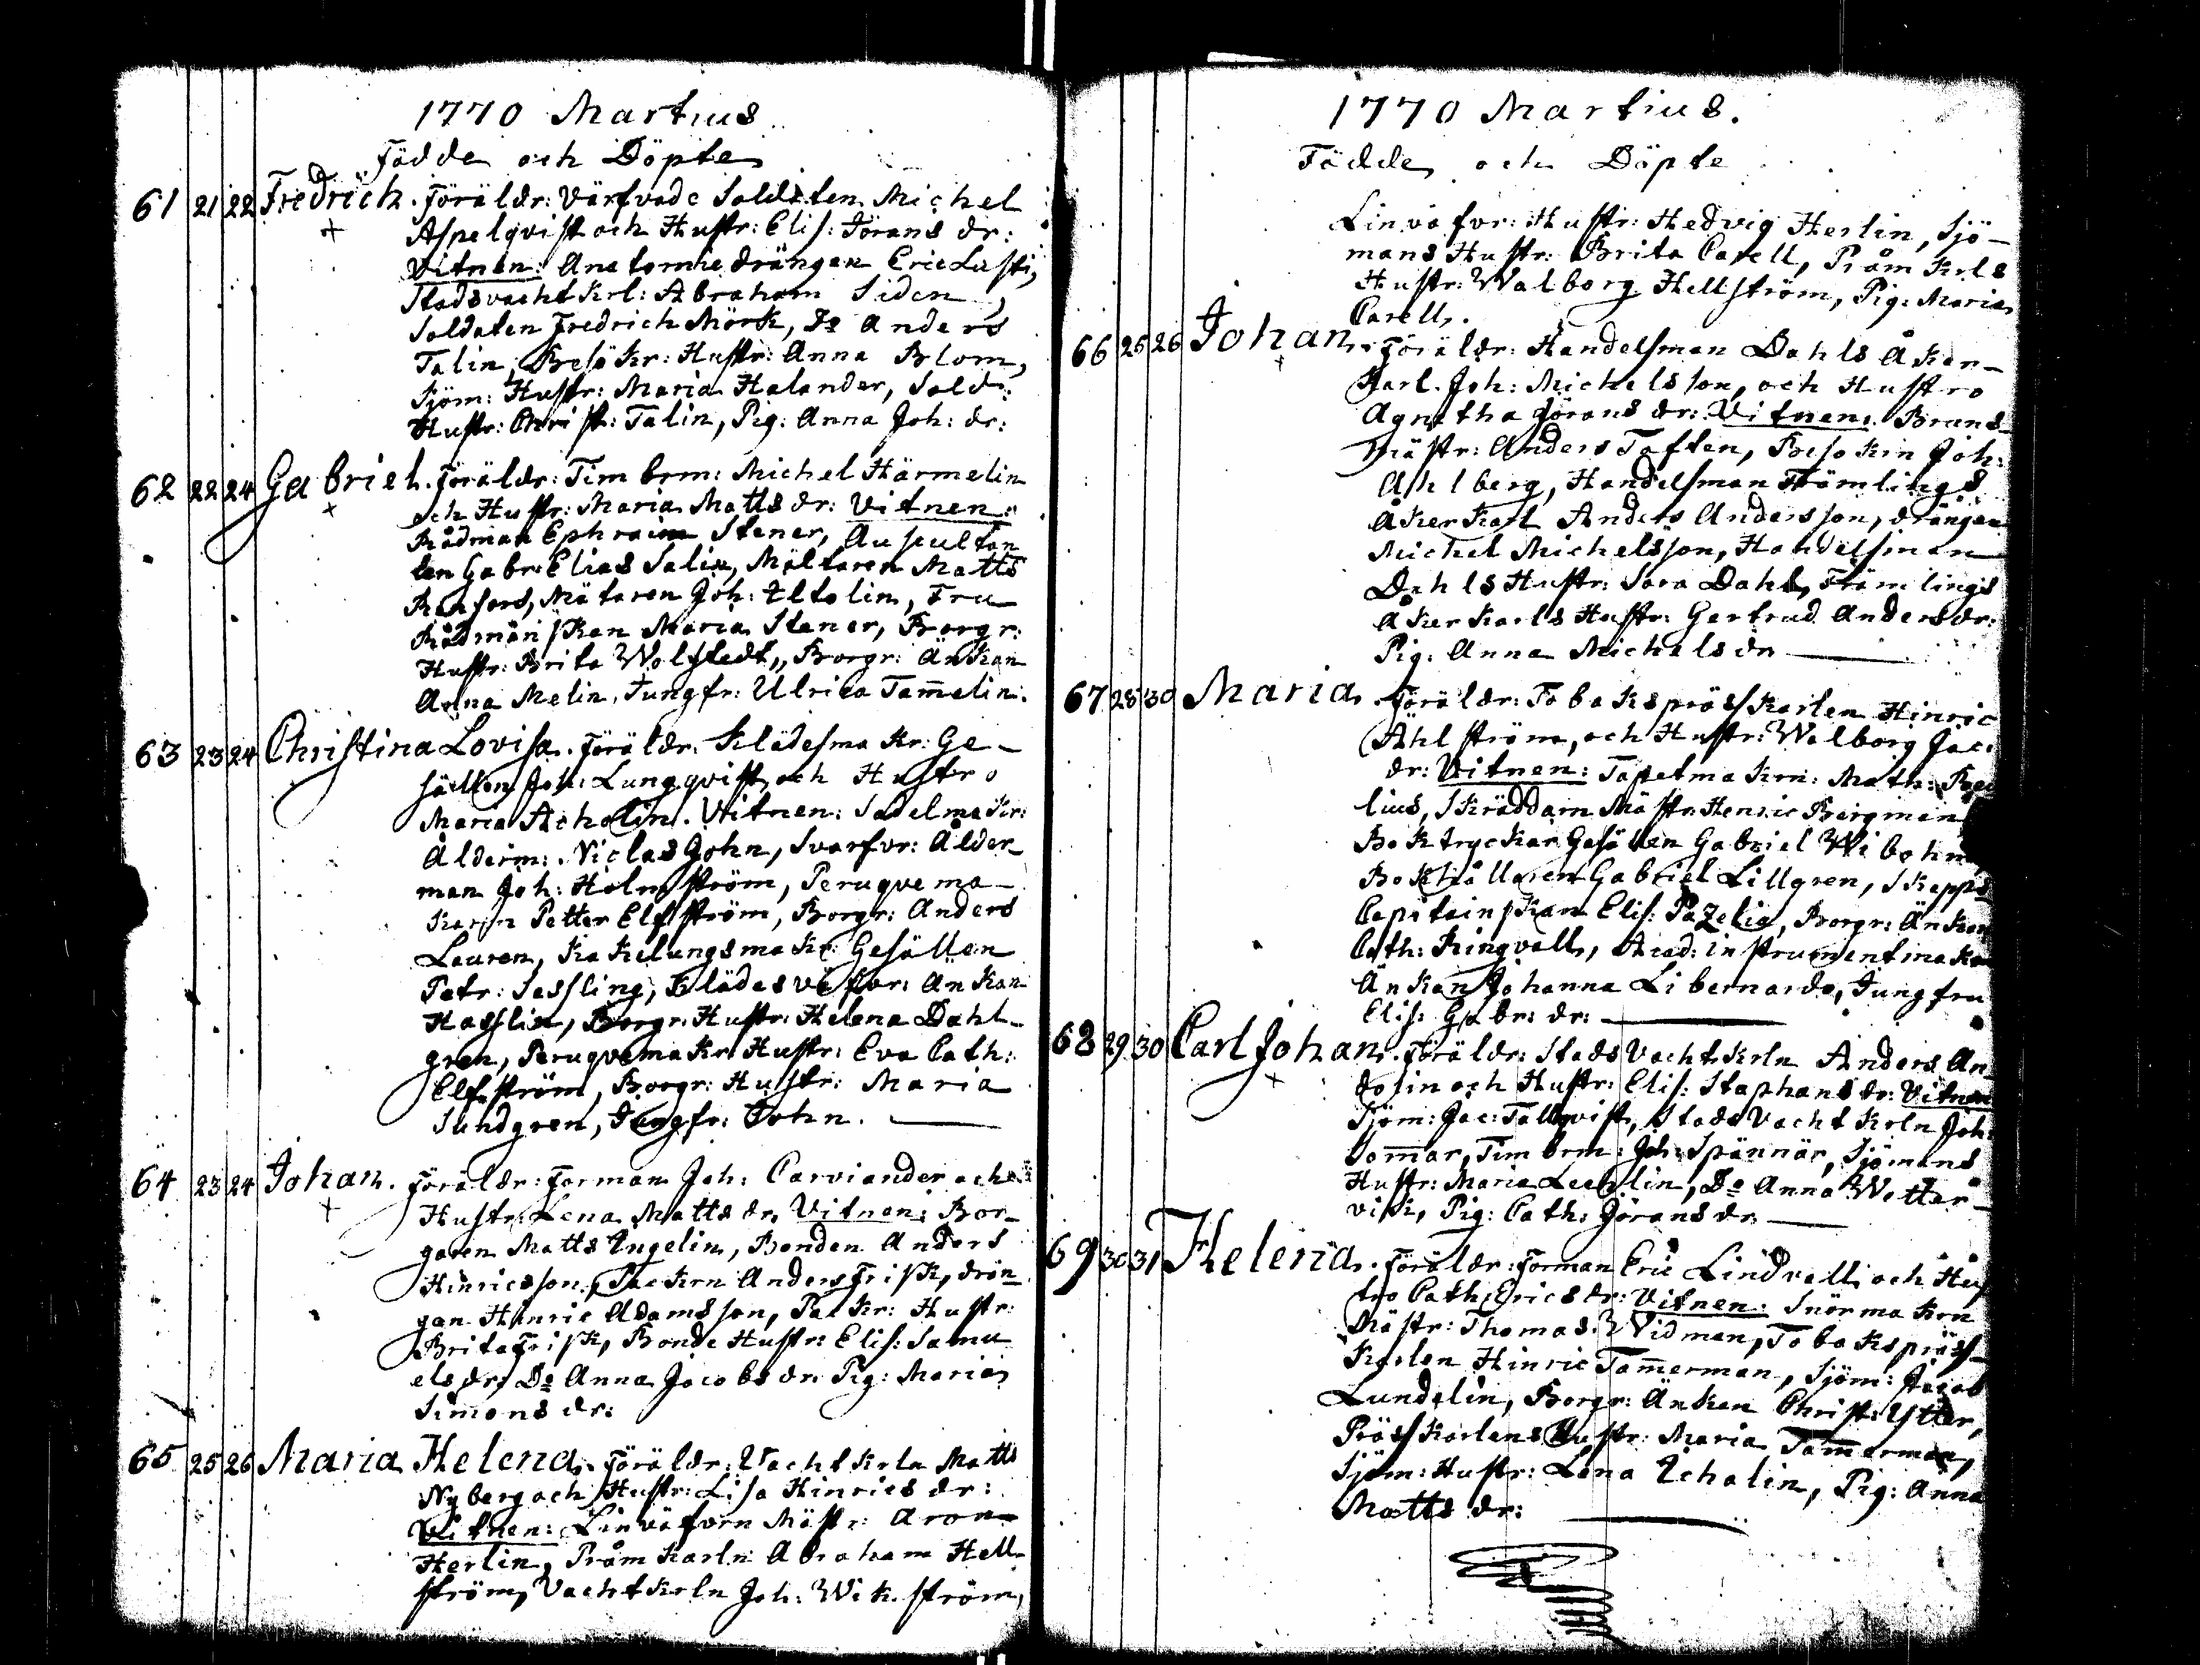 1770 Martius
Födde och Döpte
61 21 22 Fredrich. Föräldr: Värfvade Soldaten Michel
Aspelqvist och Hustr: Elis: Jörans dr:
Vitnen: Anatomiedrängen Eric Lusti,
Stadsvacht Krl: Abraham Siden,
Soldaten Fredrich Mörk, Do Anders
Talin, Besökr: Hustr: Anna Blom,
Sjöm: Hustr: Maria Halander, Sold:
Hustr: Christ: Talin, Pig: Anna Joh: dr:
62 22 24 Gabriel. Föräldr: Timbrm: Michel Härmelin
och Hustr: Maria Matts dr: Vitnen:
Rådman Ephraim Stener, Auscultan
ten Gabr: Elias Salin, Mältaren Matts
Renfors, Mätaren Joh: Altolin, Fru
Rådmänskan Maria Stener, Borgr:
Hustr: Brita Wolstedt, Borgr: Änkan
Anna Melin, Jungfr: Ulrica Tam̅elin.
63 23 24 Christina Lovisa. Föräldr: Klädesmakr: Ge-
sällen Joh: Lungqvist, och Hustro
Maria Acholin. Vitnen: Sadelmakr:
Ålderm: Niclas John, Svarfvr: Ålder-
man Joh: Holmström, Peruqvema-
karn Petter Elfström, Borgr: Anders
Lauren, Kakelungsmakr: Gesällen
Petr: Sessling, Klädesväfvr: Änkan
Hasslin, Borgr: Hustr: Helena Dahl-
gren, Peruqvemakr Hustr: Eva Cath:
Elfström, Borgr: Hustr: Maria
Sundgren, Jungfr: John.
64 23 24 Johan. Föräldr: Forman Joh: Carviander och
Hustr: Lena Matts dr. Vitnen: Bor-
garen Matts Ingelin, Bonden Anders
Hinricsson, Packrn Anders Frisk, drän
gen Hinric Adamsson, Packr: Hustr:
Brita Frisk, Bonde Hustr: Elis: Samu
els dr, Do Anna Jacobs dr. Pig: Maria
Simons dr:
65 25 26 Maria Helena. Föräldr: Vacht Krln Matts
Nyberg och Hustr: Lisa Hinrics dr:
Vitnen: Linväfvrn Mästr: Aron
Herlin, Pråmkarln Abraham Hell-
ström, Vacht Krln Joh: Wikström,
1770 Martius.
Födde och Döpte
Linväfvr: Hustr: Hedvig Herlin, Sjö-
mans Hustr: Brita Carell, Pråm Krls
Hustr: Walborg Hellström, Pig: Maria
Carell.
66 25 26 Johan. Föräldr: Handelsman Dahls Åker-
Karl. Joh: Michelsson, och Hustro
Agnetha Jörans dr: Vitnen: Brand-
mästr: Anders Toften, Besökrn Joh:
Ahlberg, Handelsman Främlings
Åkerkarl Anders Andersson, drängen
Michel Michelsson, Handelsman
Dahls Hustr: Sara Dahl, Främlings
Åkerkarls Hustr: Gertrud Anders dr:
Pig: Anna Michels dr.
67 28 30 Maria. Föräldr: Tobakspresskarlen Hinric
Åhlström, och Hustr: Walborg Jac:
dr: Vitnen: Tapetmakrn: Math:
lius, Skräddarn Mästr: Henric Bergman
Boktryckar Gesällen Gabriel
Bokhållaren Gabriel Lillgren, Skepps
Capitainskan Elis: Pazelia, Borgr: Änkan
Cath: Ringvall, Acad: instrumentmak
Änkan Johanna Libernarda, Jungfru
Elis: Gabr: dr:
68 29 30 Carl Johan. Föräldr: Stads Vacht Krln Anders An
dolin och Hustr: Elis: Staphans dr: Vitnen
Sjöm: Jac: Tallqvist, Stads Vacht Krln Joh:
Som̅ar, Timbrm: Joh: Spännär, Sjömans
Hustr: Maria Lechlin, Do Anna Wetter-
vik, Pig: Cath: Jörans dr.
69 30 31 Helena. Föräldr: Forman Eric Lindvall och Hus
tro Cath: Erics dr: Vitnen: Snörmakrn
Mästr: Thomas Widman, Tobakspräss-
Karlen Hinric Tam̅erman, Sjöm: Jacob
Lundelin, Borgr: Änkan Christ: Ytter,
Prässkarlens Hustr: Maria Tam̅erman,
Sjöm: Hustr: Lena Echolin, Pig: Anna
Matts dr: